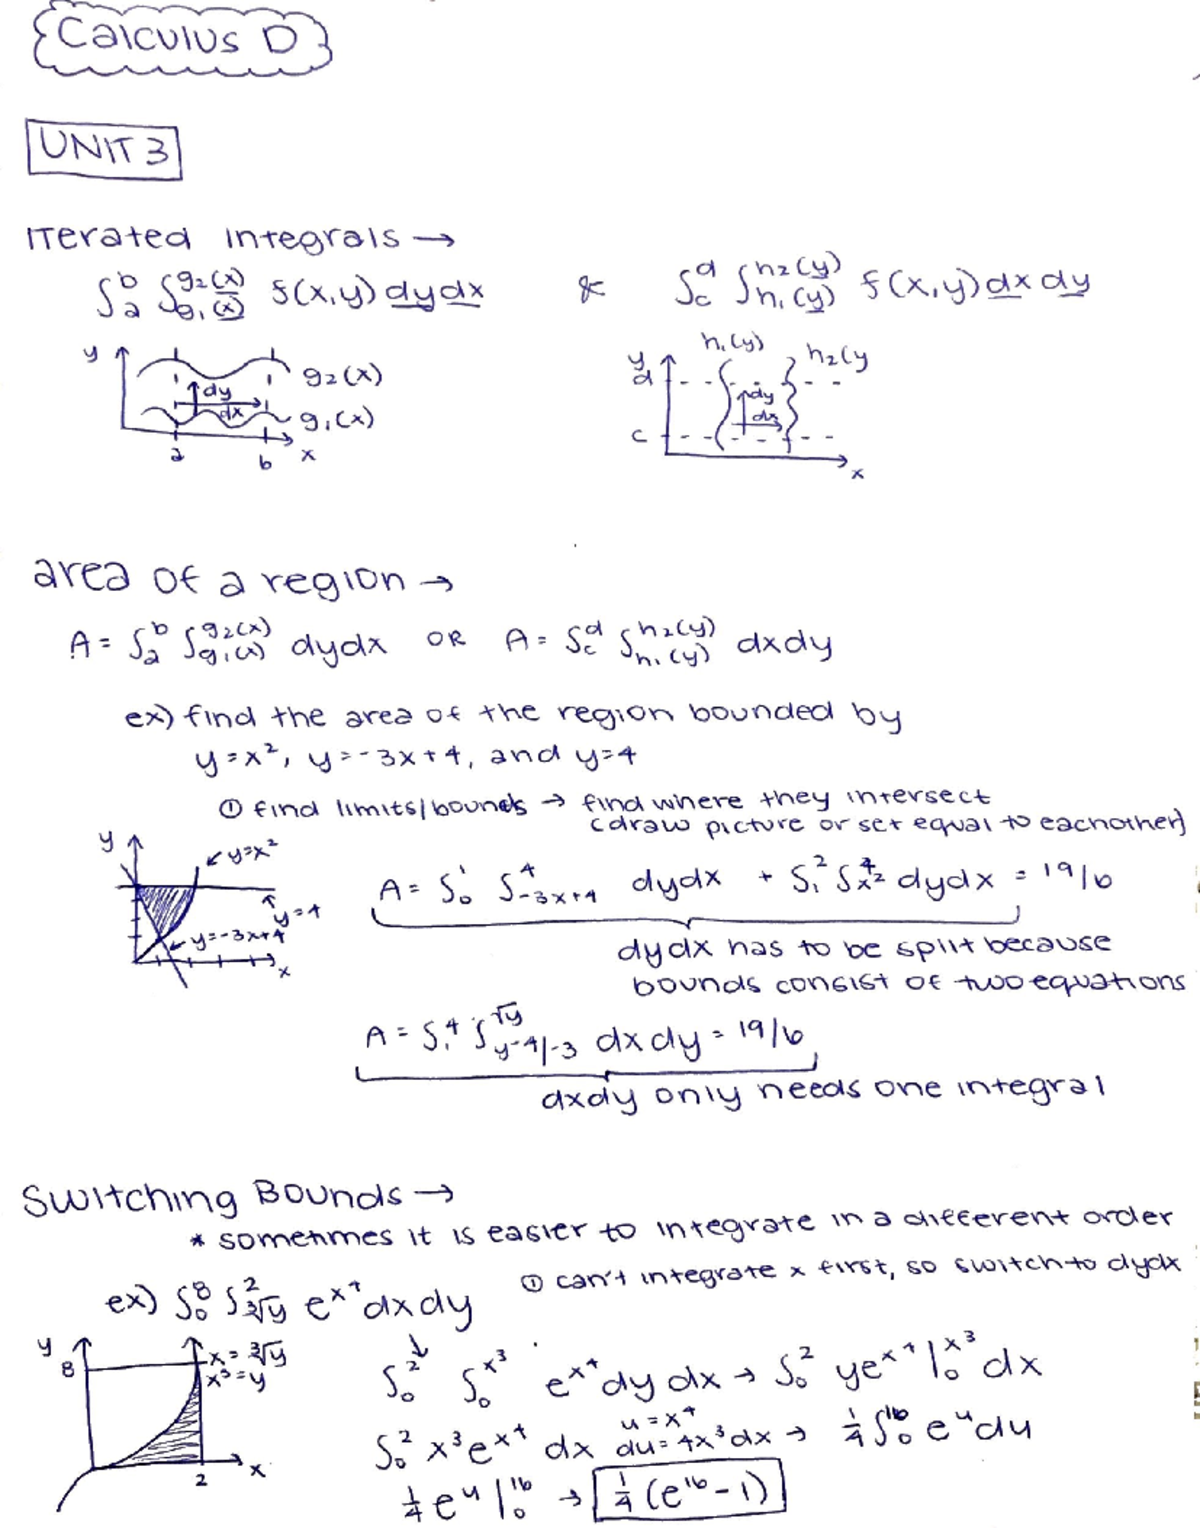 Calculus D
UNIT 3
Iterated integrals →
∫ₐᵇ ∫_{g₁(x)}^{g₂(x)} f(x,y) dydx & ∫_c^d ∫_{h₁(y)}^{h₂(y)} f(x,y) dx dy
y g₂(x) dy dx g₁(x) a b x
y d c h₁(y) h₂(y dy dx x
area of a region →
A = ∫ₐᵇ ∫_{g₁(x)}^{g₂(x)} dydx OR A = ∫_c^d ∫_{h₁(y)}^{h₂(y)} dxdy
ex) find the area of the region bounded by
y=x², y=-3x+4, and y=4
① find limits/bounds → find where they intersect
(draw picture or set equal to eachother)
y y=x² y=4 y=-3x+4 x
A = ∫₀¹ ∫_{-3x+4}^{4} dydx + ∫₁² ∫_{x²}^{4} dydx = 19/6
dydx has to be split because
bounds consist of two equations
A = ∫₁⁴ ∫_{y-4/-3}^{√y} dx dy = 19/6
dxdy only needs one integral
Switching Bounds →
* sometimes it is easier to integrate in a different order
ex) ∫₀⁸ ∫_{∛y}^{2} e^{x⁴} dx dy ① can't integrate x first, so switch to dydx
y 8 x=∛y x³=y 2 x
∫₀² ∫₀^{x³} e^{x⁴} dy dx → ∫₀² ye^{x⁴} |₀^{x³} dx
∫₀² x³e^{x⁴} dx u=x⁴ du=4x³dx → ¼ ∫₀¹⁶ e^u du
¼ e^u |₀¹⁶ → ¼ (e¹⁶ - 1)